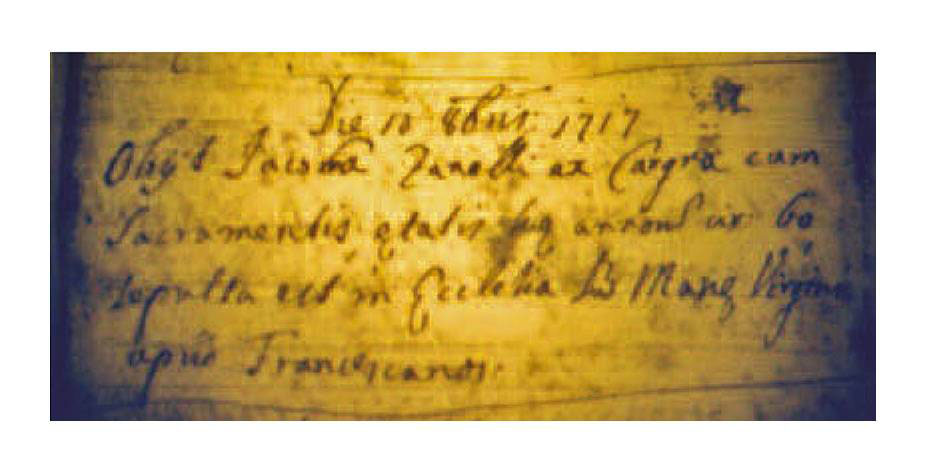 Die 10 8bris 1717
Obijt Jacoba Zanelli ex Cargna cum
Sacramentis etatis suę annorum cir: 60
sepulta est in Ecclesia Marię Virginis
apud Franciscanos.